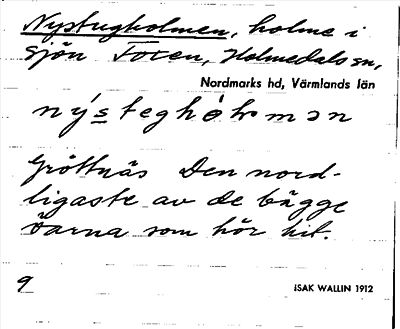 Nystugholmen, holme i
sjön Foxen, Holmedals sn,
Nordmarks hd, Värmlands län
nýsteghòlmən
Gröttnäs Den nord-
ligaste av de bägge
öarna som hör hit.
9
ISAK WALLIN 1912